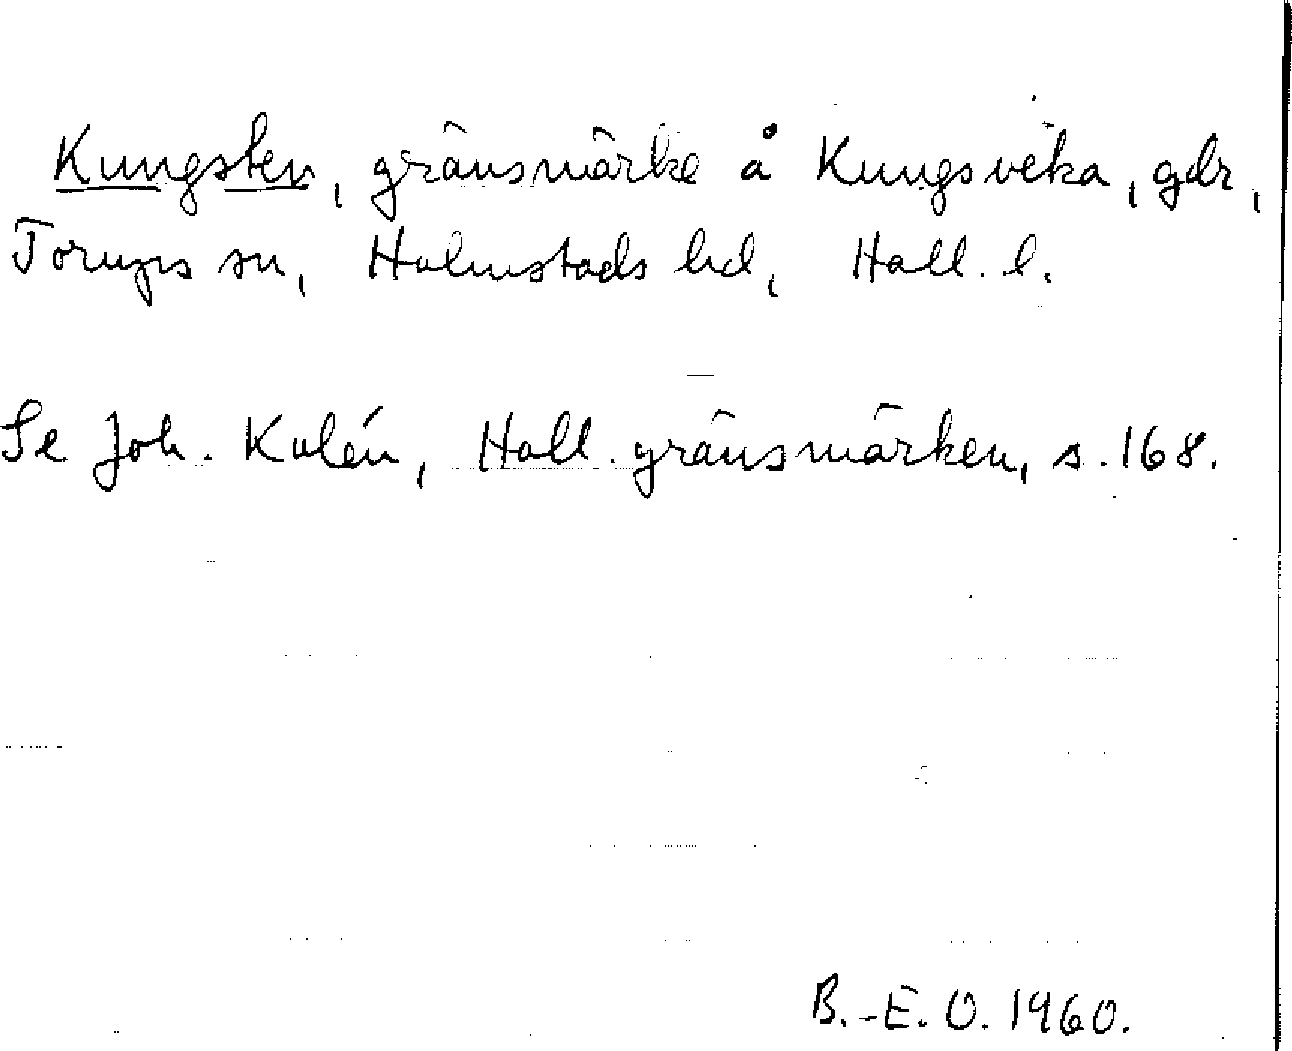 Kungsten, gränsmärke å Kungsveka, gdr,
Torups sn, Halmstads hd, Hall. l.
Se Joh. Kalén, Hall. gränsmärken, s. 168.
B.-E. O. 1960.